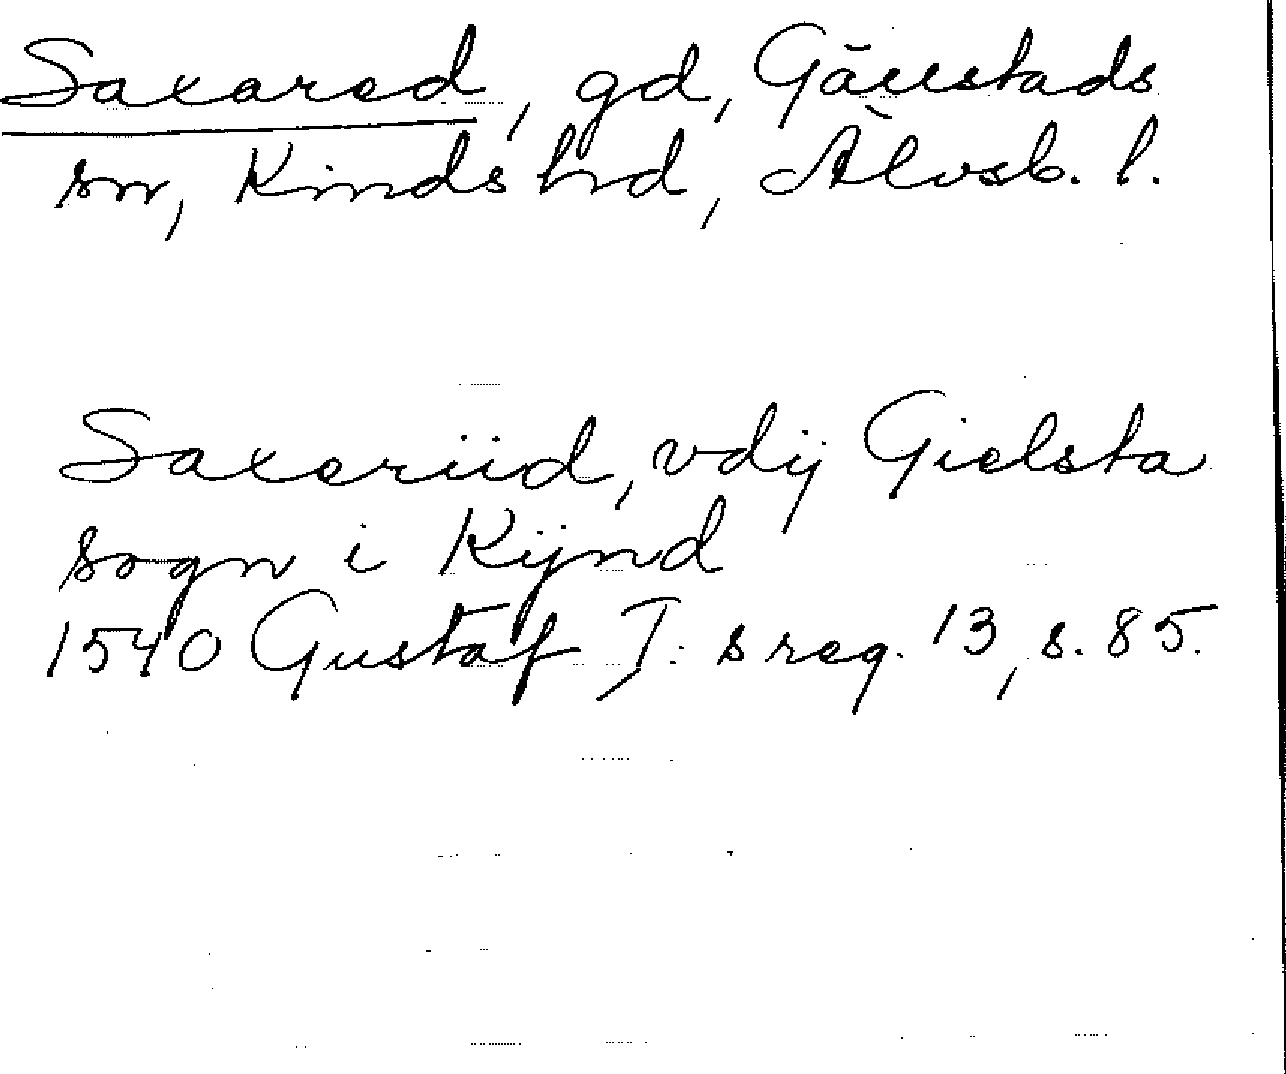 Saxared, gd, Gällstads
sn, Kinds hd, Älvsb. l.
Saxerüd, vdij Gielsta
sogn i Kÿnd
1540 Gustaf I: s reg. 13, s. 85.